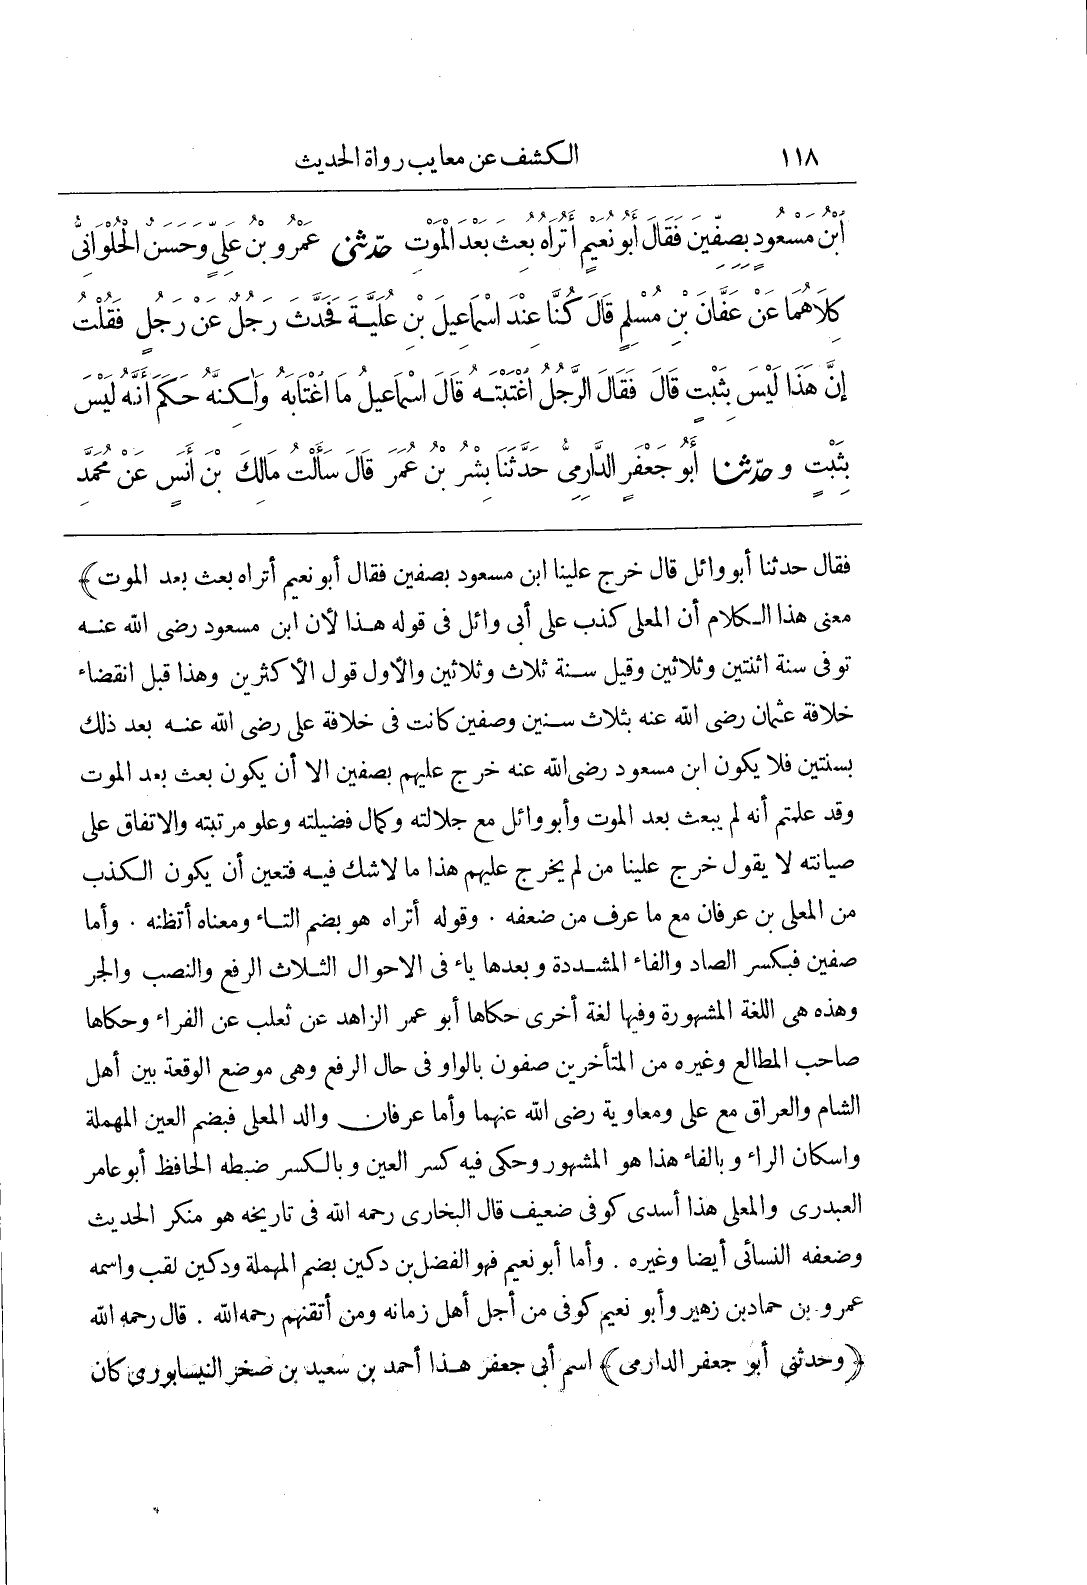 ١١٨ الكشف عن معايب رواة الحديث
ابْنُ مَسْعُودٍ بِصِفِّينَ فَقَالَ أَبُو نُعَيْمٍ أَتُرَاهُ بُعِثَ بَعْدَ الْمَوْتِ حدّثني عَمْرُو بْنُ عَلِيٍّ وَحَسَنٌ الْحُلْوَانِيُّ
كِلَاهُمَا عَنْ عَفَّانَ بْنِ مُسْلِمٍ قَالَ كُنَّا عِنْدَ اسْمَاعِيلَ بْنِ عُلَيَّةَ فَحَدَّثَ رَجُلٌ عَنْ رَجُلٍ فَقُلْتُ
إِنَّ هَذَا لَيْسَ بِثَبْتٍ قَالَ فَقَالَ الرَّجُلُ اغْتَبْتَهُ قَالَ اسْمَاعِيلُ مَا اغْتَابَهُ وَلٰكِنَّهُ حَكَمَ أَنَّهُ لَيْسَ
بِثَبْتٍ و حدّثنا أَبُو جَعْفَرٍ الدَّارِمِيُّ حَدَّثَنَا بِشْرُ بْنُ عُمَرَ قَالَ سَأَلْتُ مَالِكَ بْنَ أَنَسٍ عَنْ مُحَمَّدِ
فقال حدثنا أبو وائل قال خرج علينا ابن مسعود بصفين فقال أبو نعيم أتراه بعث بعد الموت﴾
معنى هذا الكلام أن المعلى كذب على أبى وائل فى قوله هذا لأن ابن مسعود رضى الله عنه
توفى سنة اثنتين وثلاثين وقيل سنة ثلاث وثلاثين والأول قول الأكثرين وهذا قبل انقضاء
خلافة عثمان رضى الله عنه بثلاث سنين وصفين كانت فى خلافة على رضى الله عنه بعد ذلك
بسنتين فلا يكون ابن مسعود رضى الله عنه خرج عليهم بصفين الا أن يكون بعث بعد الموت
وقد علمتم أنه لم يبعث بعد الموت وأبو وائل مع جلالته وكمال فضيلته وعلو مرتبته والاتفاق على
صيانته لا يقول خرج علينا من لم يخرج عليهم هذا ما لا شك فيه فتعين أن يكون الكذب
من المعلى بن عرفان مع ما عرف من ضعفه . وقوله أتراه هو بضم التاء ومعناه أتظنه . وأما
صفين فبكسر الصاد والفاء المشددة وبعدها ياء فى الاحوال الثلاث الرفع والنصب والجر
وهذه هى اللغة المشهورة وفيها لغة أخرى حكاها أبو عمر الزاهد عن ثعلب عن الفراء وحكاها
صاحب المطالع وغيره من المتأخرين صفون بالواو فى حال الرفع وهى موضع الوقعة بين أهل
الشام والعراق مع على ومعاوية رضى الله عنهما وأما عرفان والد المعلى فبضم العين المهملة
واسكان الراء وبالفاء هذا هو المشهور وحكى فيه كسر العين وبالكسر ضبطه الحافظ أبو عامر
العبدرى والمعلى هذا أسدى كوفى ضعيف قال البخارى رحمه الله فى تاريخه هو منكر الحديث
وضعفه النسائى أيضا وغيره . وأما أبو نعيم فهو الفضل بن دكين بضم المهملة ودكين لقب واسمه
عمرو بن حماد بن زهير وأبو نعيم كوفى من أجل أهل زمانه ومن أتقنهم رحمه الله . قال رحمه الله
﴿وحدثنى أبو جعفر الدارمى﴾ اسم أبى جعفر هذا أحمد بن سعيد بن صخر النيسابورى كان